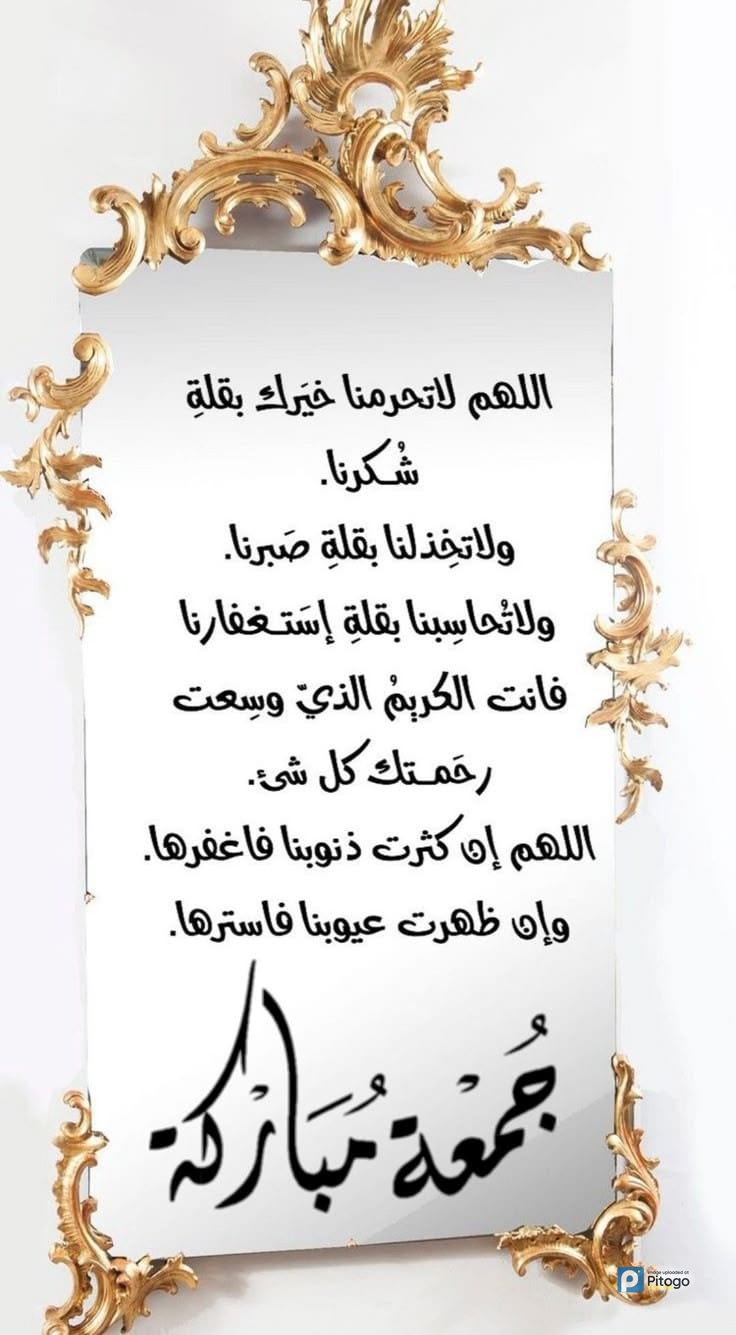 اللهم لاتحرمنا خيَرك بقلةِ
شُـكرنا.
ولاتخِذلنا بقلةِ صَبرنا.
ولاتُحاسِبنا بقلةِ إستَـغفارنا
فانت الكريمُ الذيّ وسِعت
رحَمـتك كل شئ.
اللهم إن كثرت ذنوبنا فاغفرها.
وإن ظهرت عيوبنا فاسترها.
جُمْعة مُبَارْكة
Image uploaded at
Pitogo